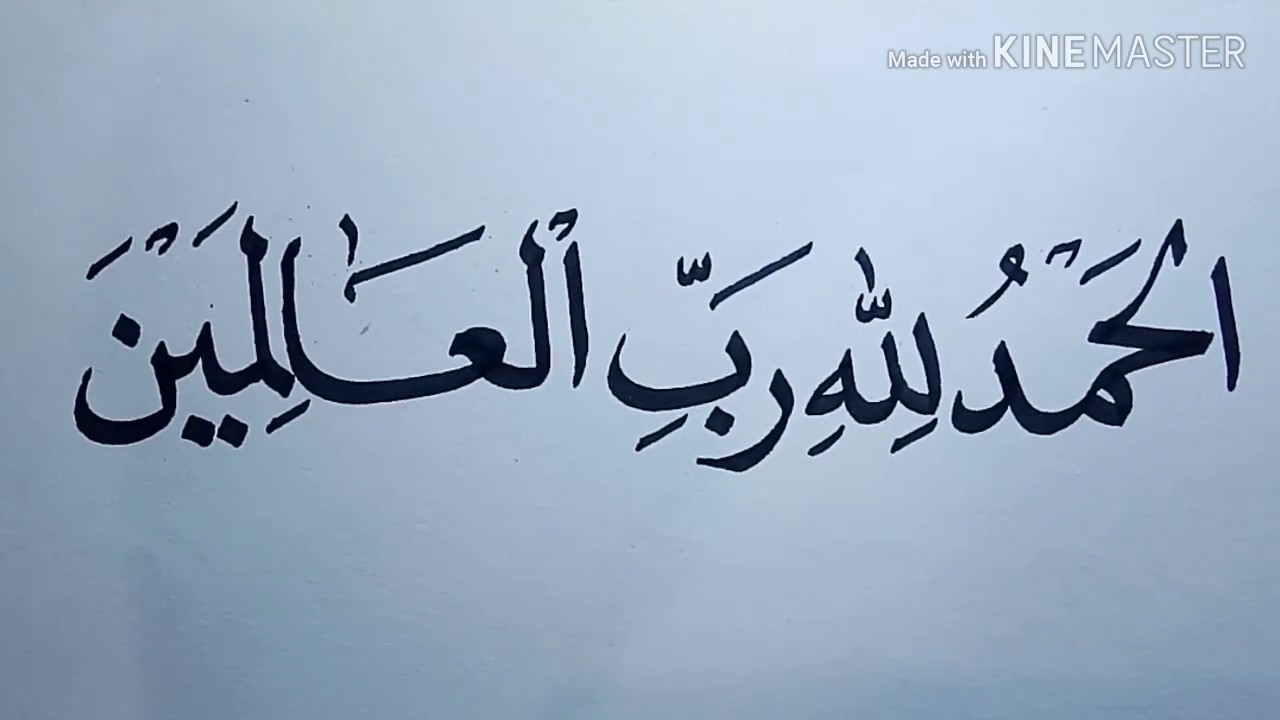 Made with KINEMASTER
الحَمْدُ لِلّٰهِ رَبِّ الْعَالَمِيْنَ